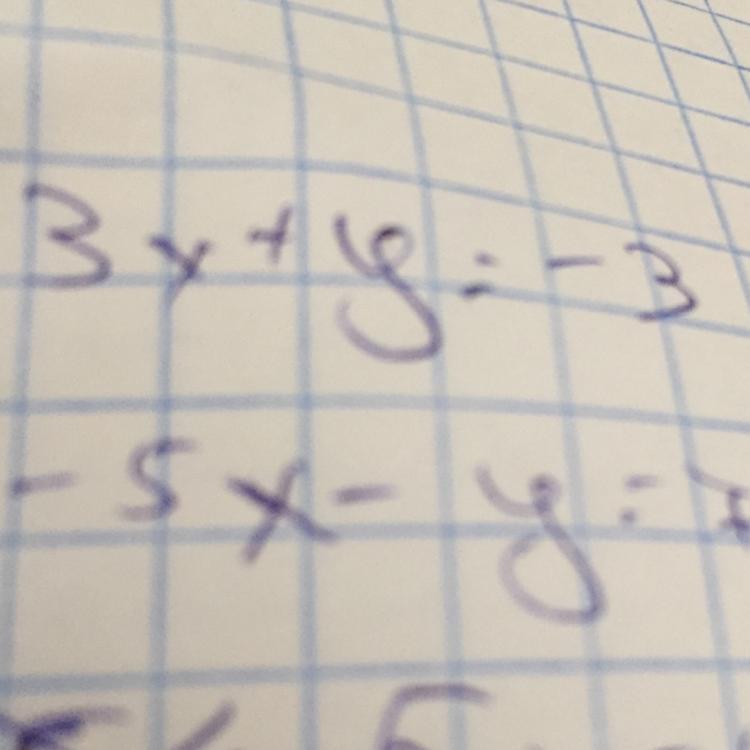 3x+y=-3
-5x-y=7